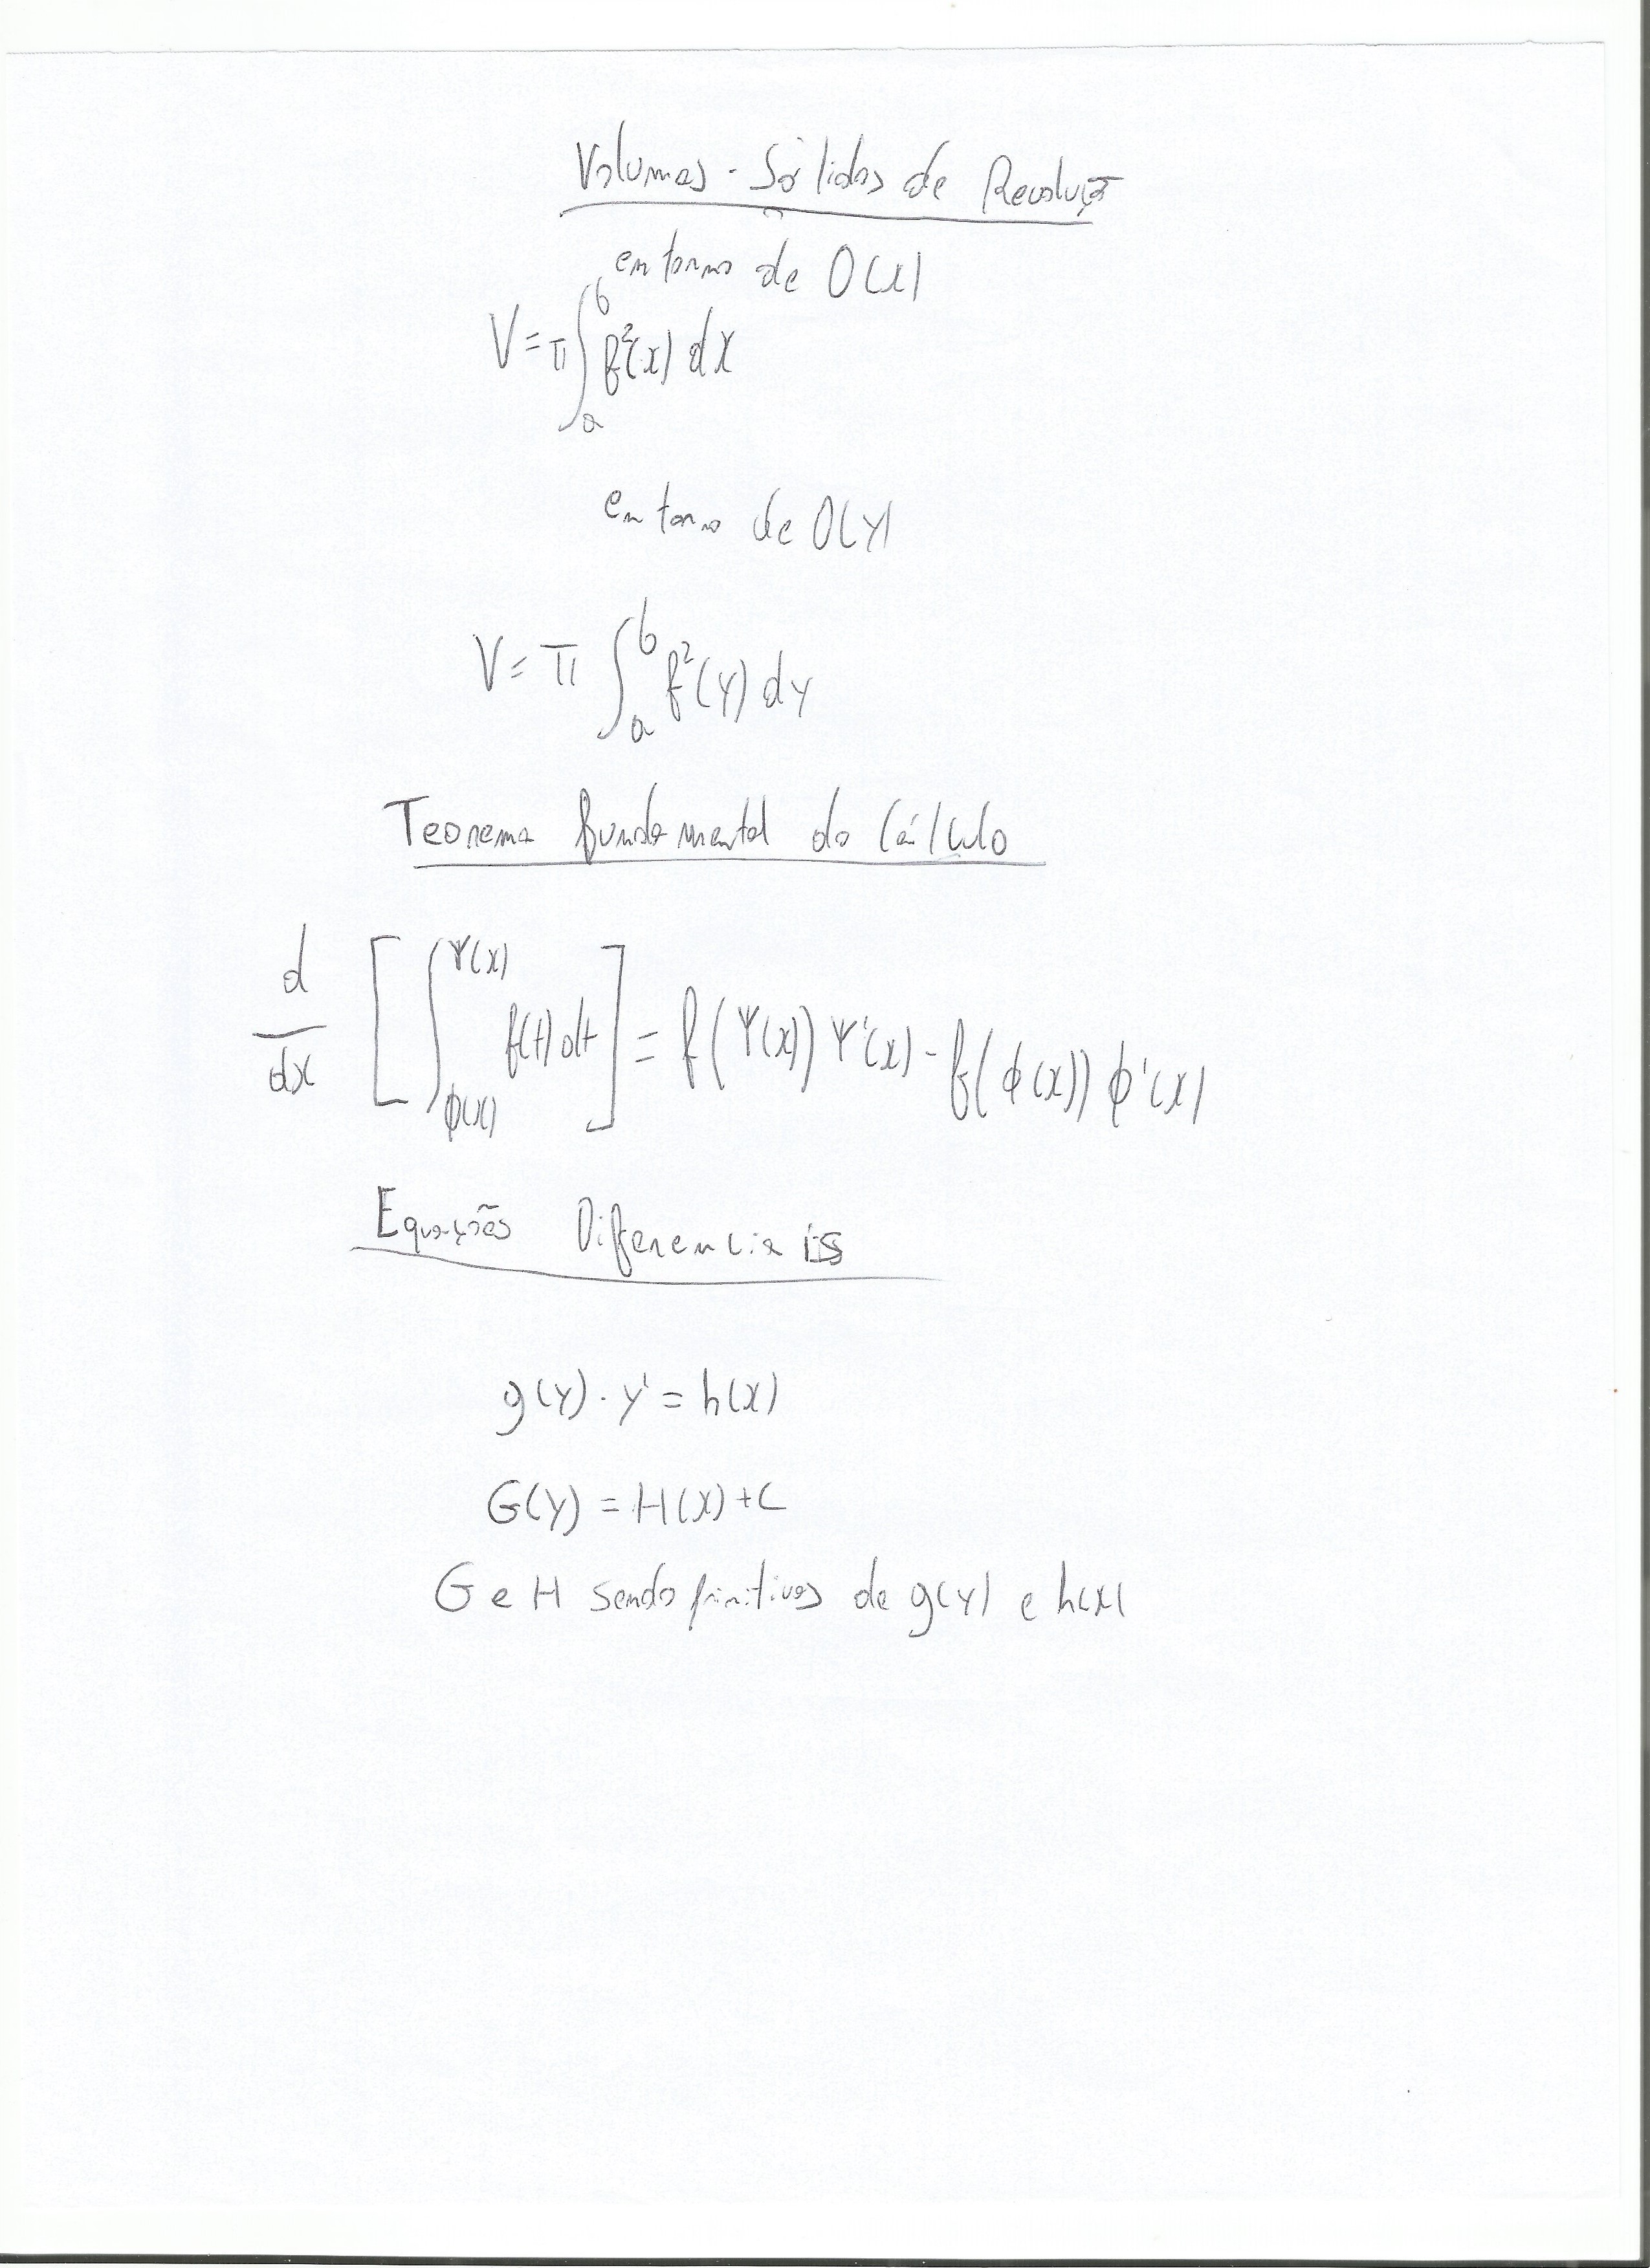 Volumes - Sólidos de Revolução
em torno de O(x)
V = π ∫_a^b f²(x) dx
em torno de O(y)
V = π ∫_a^b f²(y) dy
Teorema fundamental do Cálculo
d/dx [ ∫_{ϕ(x)}^{Ψ(x)} f(t) dt ] = f(Ψ(x)) Ψ'(x) - f(ϕ(x)) ϕ'(x)
Equações Diferenciais
g(y) . y' = h(x)
G(y) = H(x) + C
G e H sendo primitivas de g(y) e h(x)